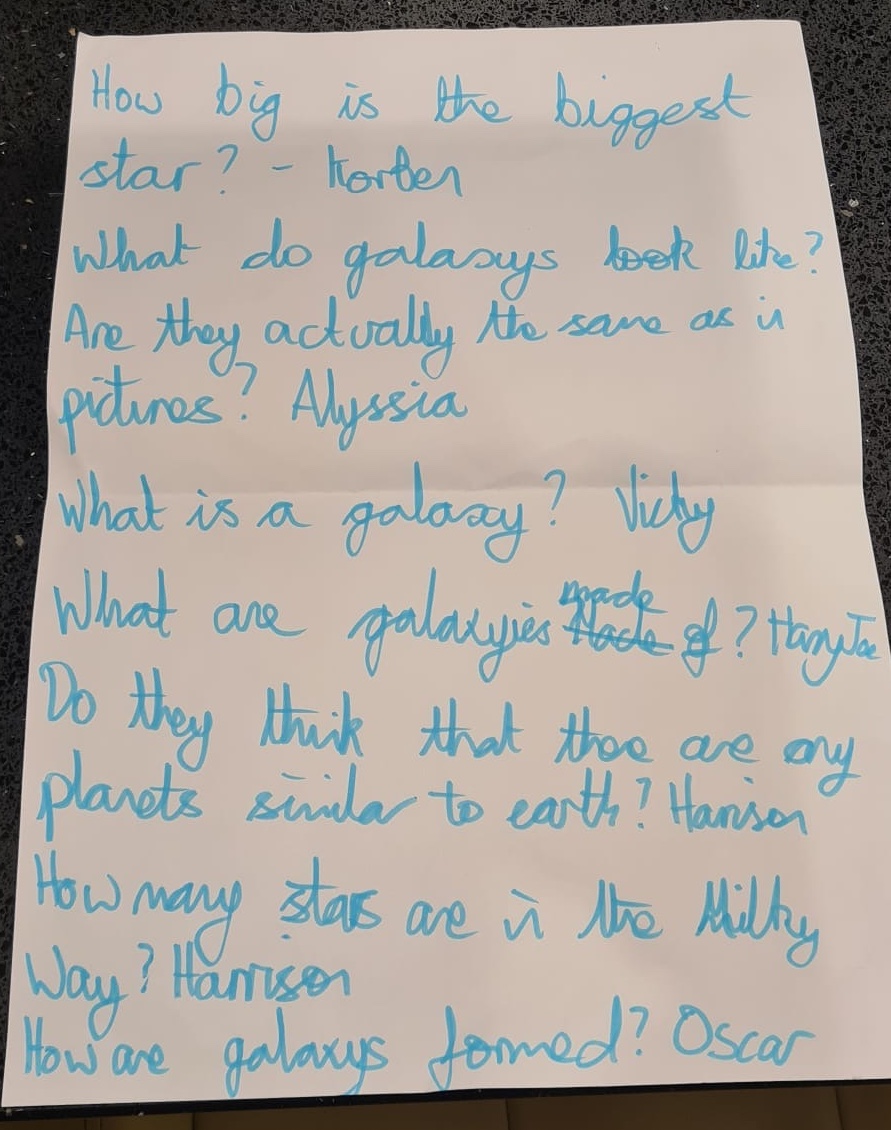 How big is the biggest
star? - Korben
What do galaxys look like?
Are they actually the same as in
pictures? Alyssia
What is a galaxy? Vicky
What are galaxyies made of? HarryJoe
Do they think that there are any
planets similar to earth? Harrison
How many stars are in the Milky
Way? Harrison
How are galaxys formed? Oscar